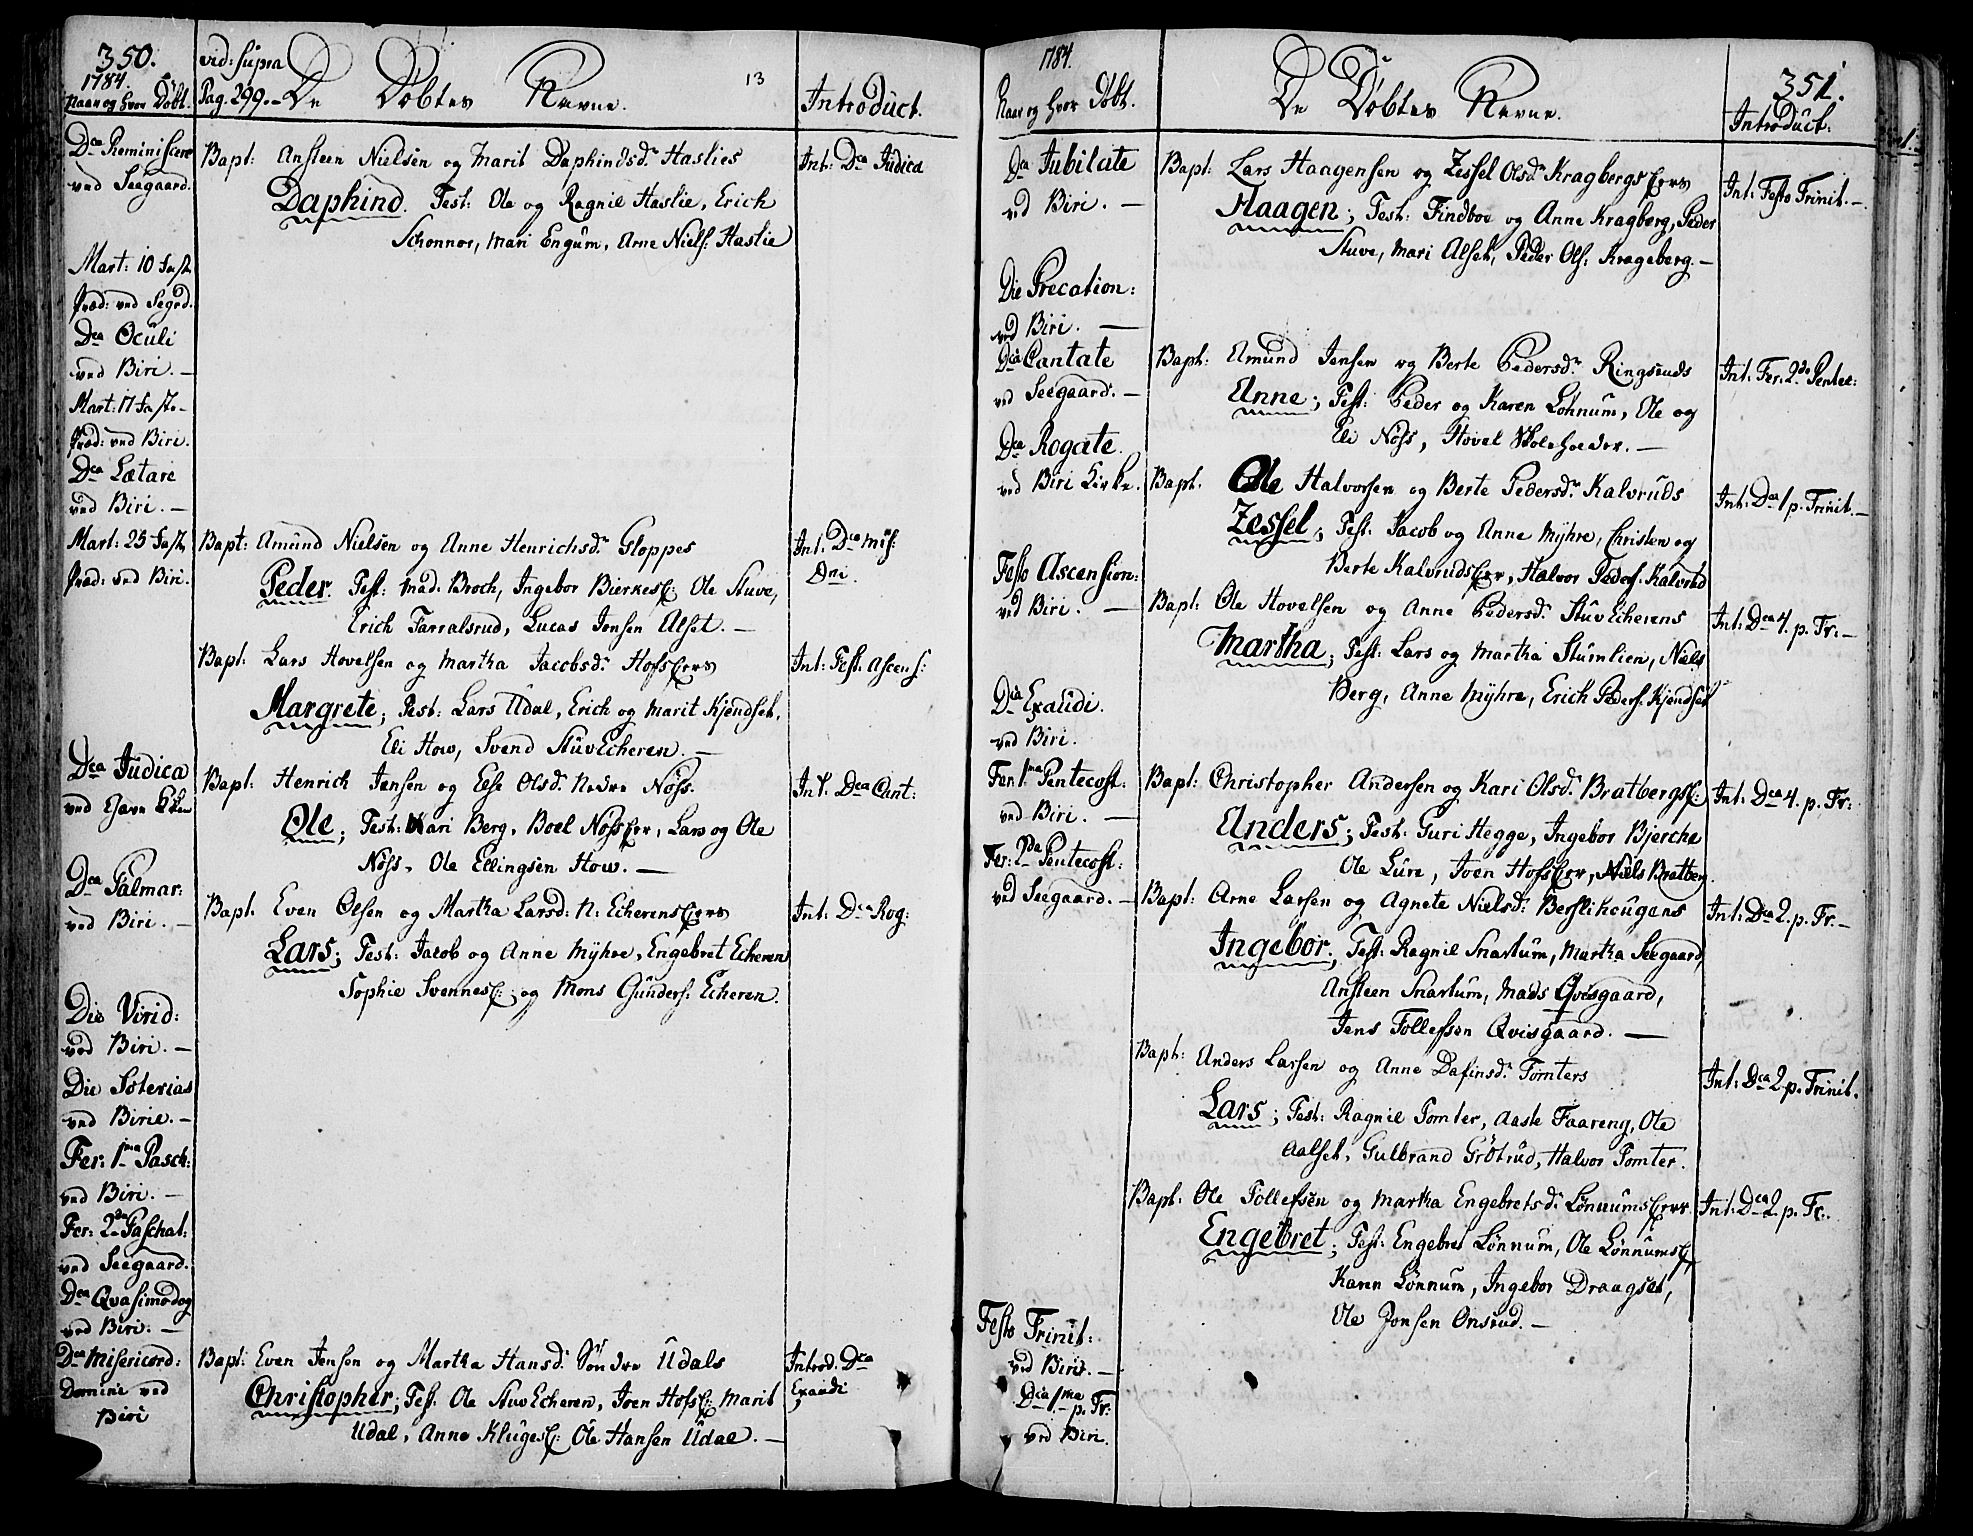 350.
1784.
Naar og hvor Döbt.
vid: supra
Pag. 299.
De Döbtes Navne.
13
Introduct.
Dca Reminiscere
ved Seegaard.
Bapt: Ansteen Nielsen og Marit Daphindsd. Haslies
Daphind. Test: Ole og Ragnil Haslie, Erich
Schonnor, Mari Engum, Arne Niels: Haslie
Int: Dca Judica
Mart: 10 Fast
Præd: ved Segrd.
Dca Oculi
ved Biri. —
Mart: 17 Faste-
Præd: ved Biri.
Dca Lætare
ved Biri. —
Mart: 25 Fast
Præd: ved Biri.
Bapt: Amund Nielsen og Anne Henrichsd. Gloppes
Peder. Test: Mad. Broch, Ingebor Bierkes Ole Stuve,
Erich Farralsrud, Lucas Jensen Alset. —
Int. Dca Mis:
Dni.
Bapt: Lars Hovelsen og Martha Jacobsd. Hofs
Margrete; Test: Lars Udal, Erich og Marit Kjendset,
Eli How, Svend StuvEcheren. —
Int: Fest. Ascens:
Dca Judica
ved
Bapt: Henrich Jensen og Else Olsd. Nedre Nöss.
Ole; Test: Kari Berg, Boel Nöss, Lars og Ole
Nöss, Ole Ellingsen How. —
Int. Dca Cant:
Dca Palmar:
ved Biri. —
Bapt. Even Olsen og Martha Larsd: N: Echerens
Lars; Test: Jacob og Anne Myhre, Engebret Echeren
Sophie Svennes og Mons Gunders: Echeren.
Int: Dca Rog:
Die Virid:
ved Biri. —
Die Soterias
ved Birie. —
Fer: 1ma Pasch:
ved Biri. —
Fer: 2da Paschat:
ved Seegaard.
Dca Qvasimodog
ved Biri. —
Dca Misericord:
Domini ved
Biri
Bapt: Even Jensen og Martha Hansd. Söndre Udals
Christopher; Test. Ole StuvEcheren, Joen Hofs Marit
Udal, Anne Kluges Ole Hansen Udal. —
Introd: Dca
Exaudi
1784.
Naar og hvor Döbt.
De Döbtes Navne.
351.
Introduct:
Dca Jubilate
ved Biri. —
Bapt: Lars Haagensen og Zessel Olsd. Kragbergs
Haagen; Test: Findboe og Anne Kragberg, Peder
Stuve, Mari Alset, Peder Ols: Krageberg. —
Int: Festo Trinit. —
Die Precation:
ved Biri. —
Dca Cantate
ved Seegaard. —
Bapt: Amund Jensen og Berte Pedersd. Ringsruds
Anne; Test: Peder og Karen Lönnum, Ole og
Eli Nöss, Hovel Skoleholder. —
Int. Fer: 2da Pentec:
Dca Rogate.
ved Biri Kirke.
Bapt. Ole Halvorsen og Berte Pedersd. Kalvruds
Zessel; Test: Jacob og Anne Myhre, Christen og
Berte Kalvruds, Halvor Peders: Kalvrud
Int: Dca 1 p. Trinit. —
Festo Ascension:
ved Biri. —
Bapt: Ole Hovelsen og Anne Pedersd. StuvEcherens
Martha; Test: Lars og Martha Stumlien, Niels
Berg, Anne Myhre, Erich Peders: Kjendset
Int: Dca 4. p. Tr: —
Dca Exaudi.
ved Biri.
Fer: 1ma Pentecost:
ved Biri. —
Bapt: Christopher Andersen og Kari Olsd. Bratbergs
Anders; Test: Guri Hegge, Ingebor Bjerche
Ole Lure, Joen Hofs, Niels Bratber.
Int: Dca 4. p. Tr:
Fer: 2da Pentecost:
ved Seegaard. —
Bapt: Arne Larsen og Agnete Nielsd. Berslihaugens
Ingebor; Test: Ragnil Snartum, Martha Seegaard,
Ansteen Snartum, Mads Qvisgaard,
Jens Tollefsen Qvisgaard. —
Int: Dca 2. p. Tr. —
Bapt: Anders Larsen og Anne Dafinsd. Tomters
Lars; Test: Ragnil Tomter, Aaste Faareng, Ole
Aalset, Gulbrand Grötrud, Halvor Tomter.
Int: Dca 2 p. Trinit.
Bapt: Ole Tollefsen og Martha Engebretsd. Lönnums
Engebret; Test: Engebret Lönnum, Ole Lönnums
Karen Lönnum, Ingebor Draagset,
Ole Jonsen Onsrud. —
Int: Dca 2. p. Tr.
Festo Trinit:
ved Biri. —
Dca 1ma p. Tr:
ved Biri.